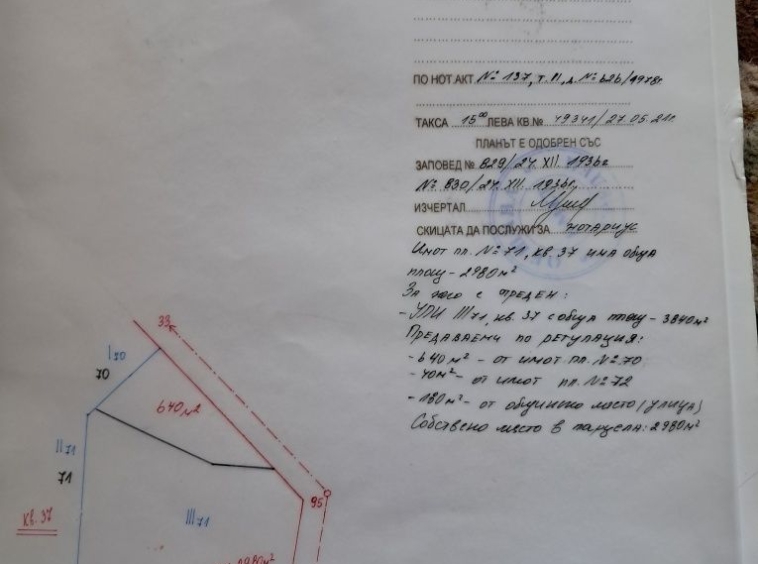 ПО НОТ. АКТ № 137, т. II, д. № 626/1978г.
ТАКСА 15⁰⁰ ЛЕВА КВ.№ 49341/27.05.21г.
ПЛАНЪТ Е ОДОБРЕН СЪС
ЗАПОВЕД № 829/24.XII.1936г.
№ 830/24.XII.1936г.
ИЗЧЕРТАЛ
СКИЦАТА ДА ПОСЛУЖИ ЗА нотариус
Имот пл. № 71, кв. 37 има обща
площ - 2980м²
За него е отреден:
- УПИ III71, кв. 37 с обща площ - 3840м²
Предаваеми по регулация:
- 640м² - от имот пл. № 70
- 40м² - от имот пл. № 72
- 180м² - от общинско място (улица)
Собствено място в парцела: 2980м²
33
I70
70
640м²
II71
71
95
кв. 37
III71
2980м²